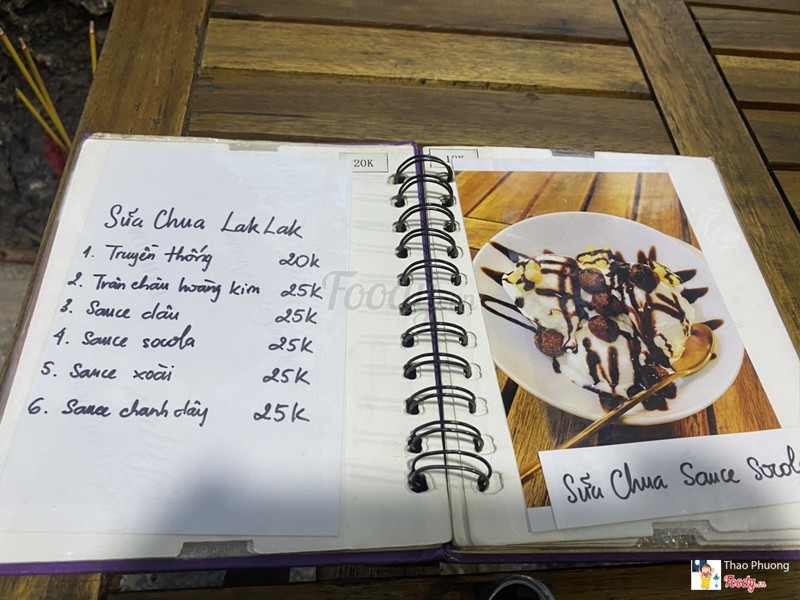 20K
Sữa Chua Lak Lak
1. Truyền thống 20k
2. Trân châu hoàng kim 25K
3. Sauce dâu 25K
4. Sauce socola 25K
5. Sauce xoài 25K
6. Sauce chanh dây 25K
10K
Sữa Chua Sauce Socola
Foody.vn
Thao Phuong
Foody.vn